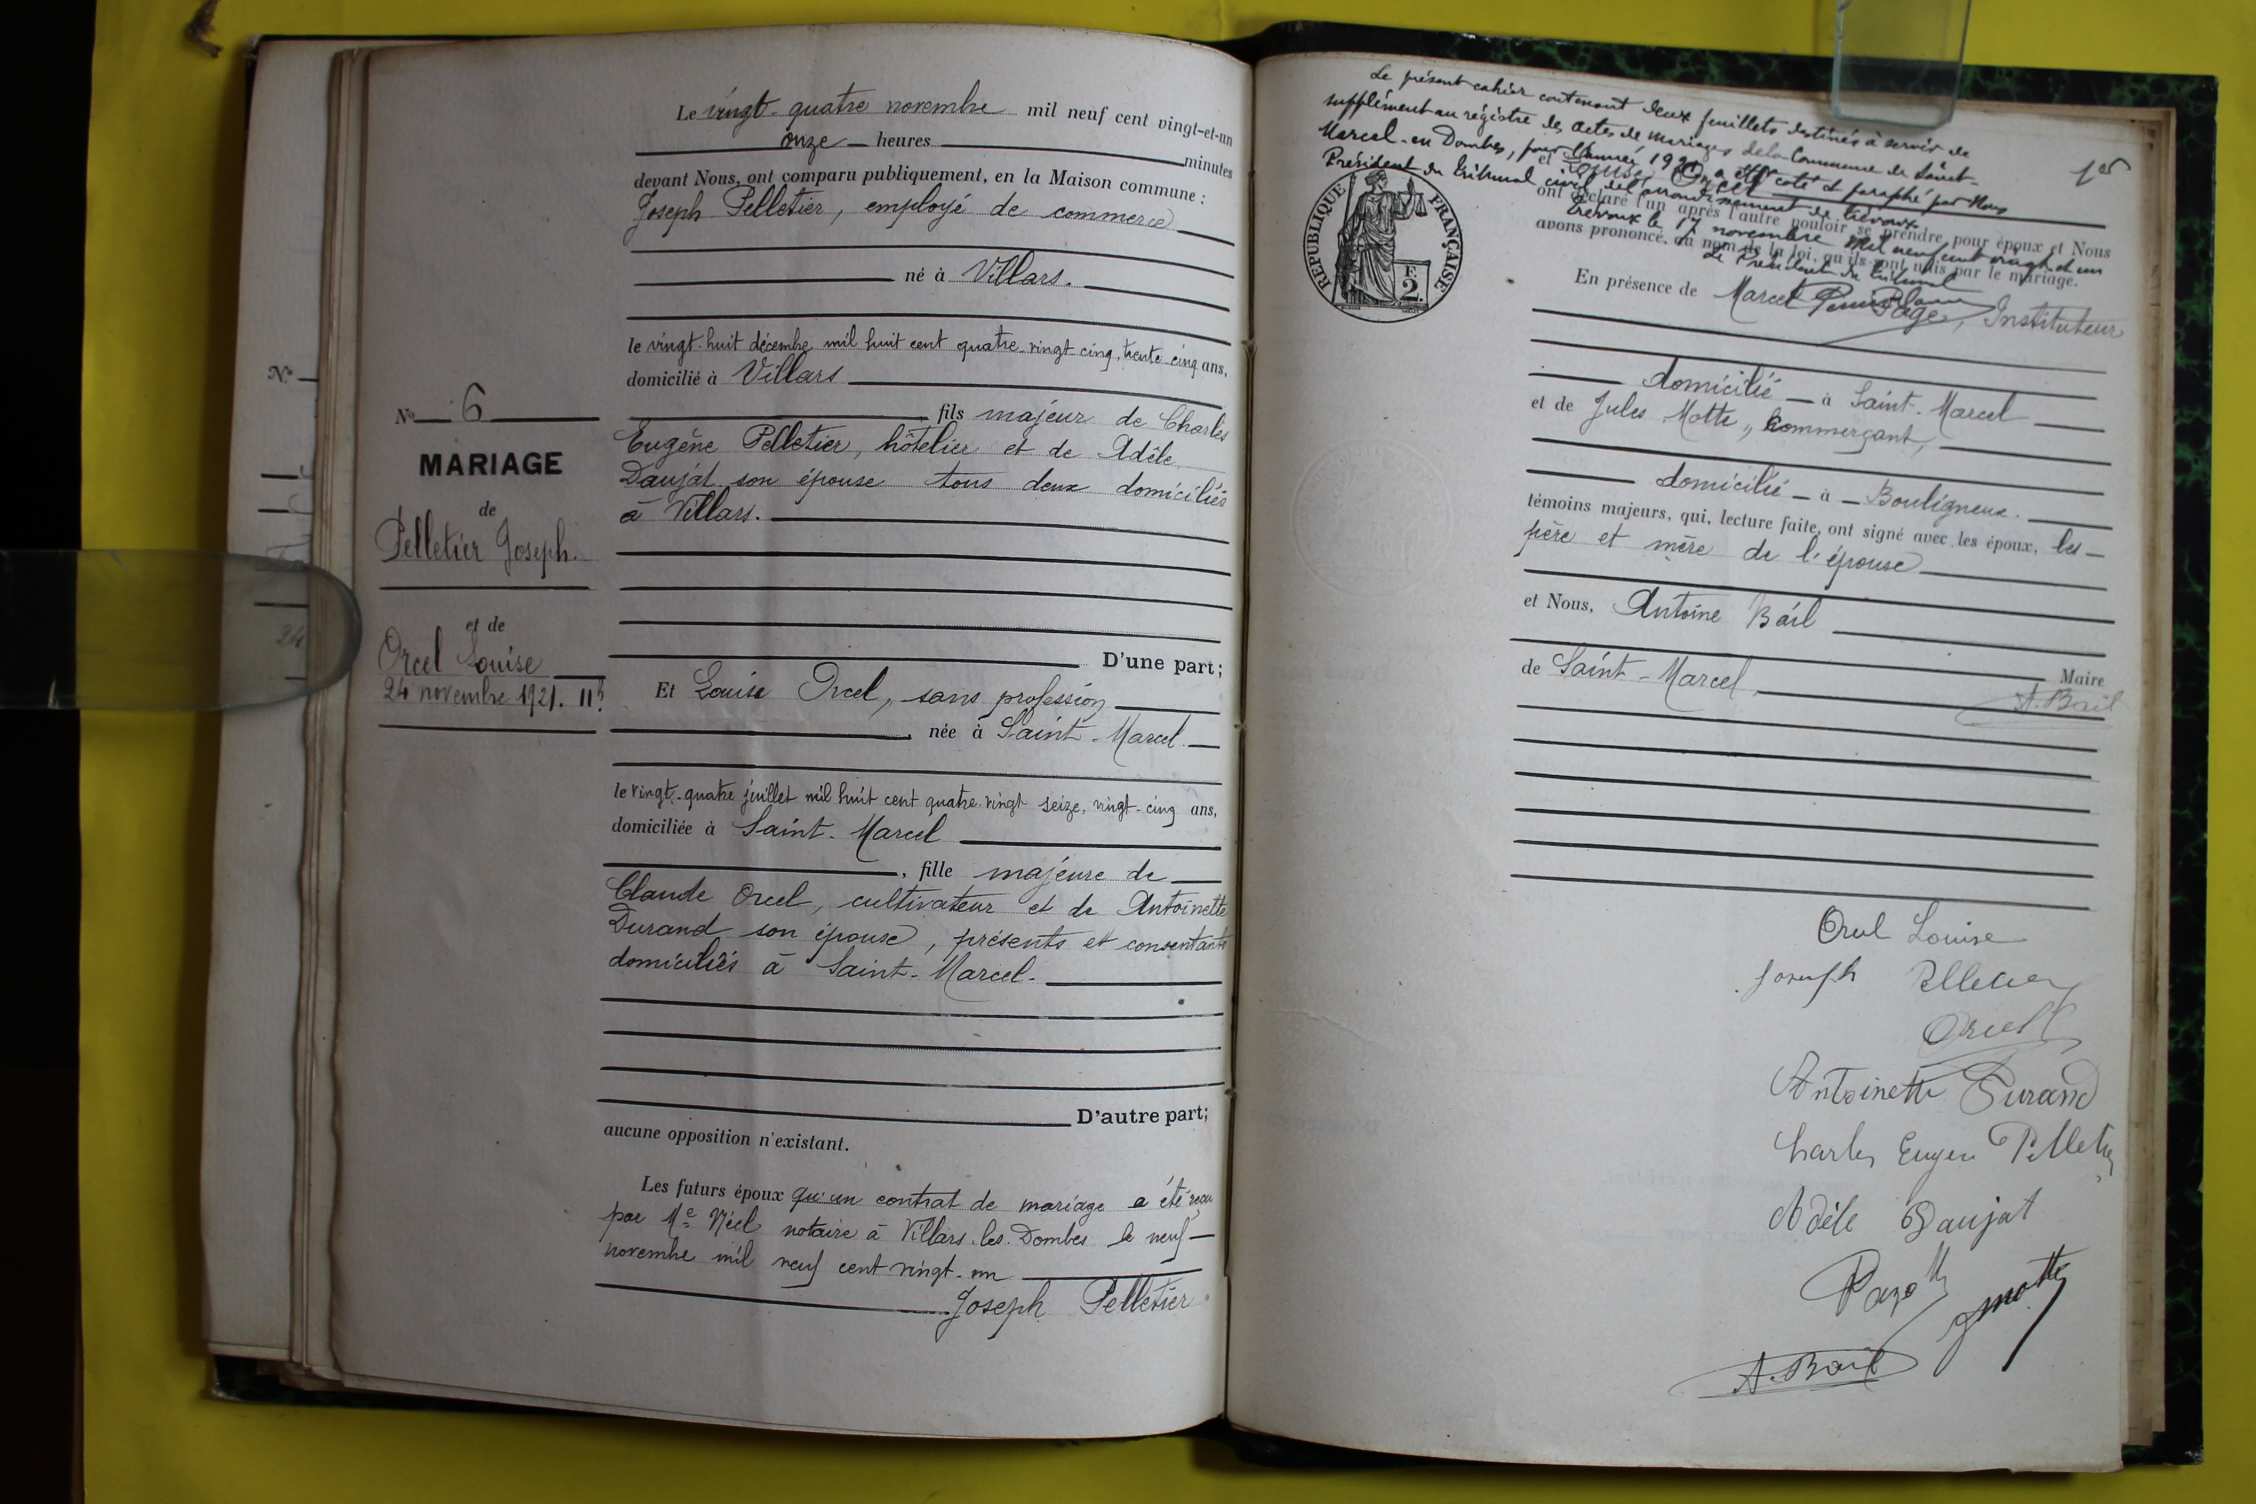 Le vingt-quatre novembre mil neuf cent vingt-et-un
onze heures minutes
devant Nous, ont comparu publiquement, en la Maison commune :
Joseph Pelletier, employé de commerce
né à Villars.
le vingt-huit décembre mil huit cent quatre-vingt-cinq, trente-cinq ans,
domicilié à Villars
fils majeur de Charles
Eugène Pelletier, hôtelier et de Adèle
Daujat son épouse tous deux domiciliés
à Villars.
D'une part;
Et Louise Orcel, sans profession
, née à Saint-Marcel
le vingt-quatre juillet mil huit cent quatre-vingt seize, vingt-cinq ans,
domiciliée à Saint-Marcel
, fille majeure de
Claude Orcel, cultivateur et de Antoinette
Durand son épouse, présents et consentants
domiciliés à Saint-Marcel.
D'autre part;
aucune opposition n'existant.
Les futurs époux qu'un contrat de mariage a été reçu
par Me notaire à Villars-les-Dombes le neuf
novembre mil neuf cent vingt-un
Joseph Pelletier
No
24
No 6
MARIAGE
de
Pelletier Joseph.
et de
Orcel Louise
24 novembre 1921. 11h.
Le présent cahier contenant deux feuillets destinés à servir de
supplément au régistre des actes de mariages de la Commune de Saint-
Marcel-en-Dombes, pour l'année 1921 a été coté et paraphé par Nous
Président du tribunal civil de l'arrondissement de Trévoux
Trévoux le 17 novembre mil neuf cent vingt et un
Le Président du tribunal
1er
RÉPUBLIQUE FRANÇAISE
F.
2.
et Louise Orcel
ont déclaré l'un après l'autre vouloir se prendre pour époux et Nous
avons prononcé, au nom de la loi, qu'ils sont unis par le mariage.
En présence de Marcel Page, Instituteur
domicilié à Saint-Marcel
et de Jules Motte, Commerçant,
domicilié à Bouligneux.
témoins majeurs, qui, lecture faite, ont signé avec les époux, les
père et mère de l'épouse
et Nous, Antoine Bail
Maire
de Saint-Marcel,
A. Bail
Orcel Louise
Joseph Pelletier
Orcel
Antoinette Durand
Charles Eugen Pelletier
Adèle Daujat
J Motte
A. Bail